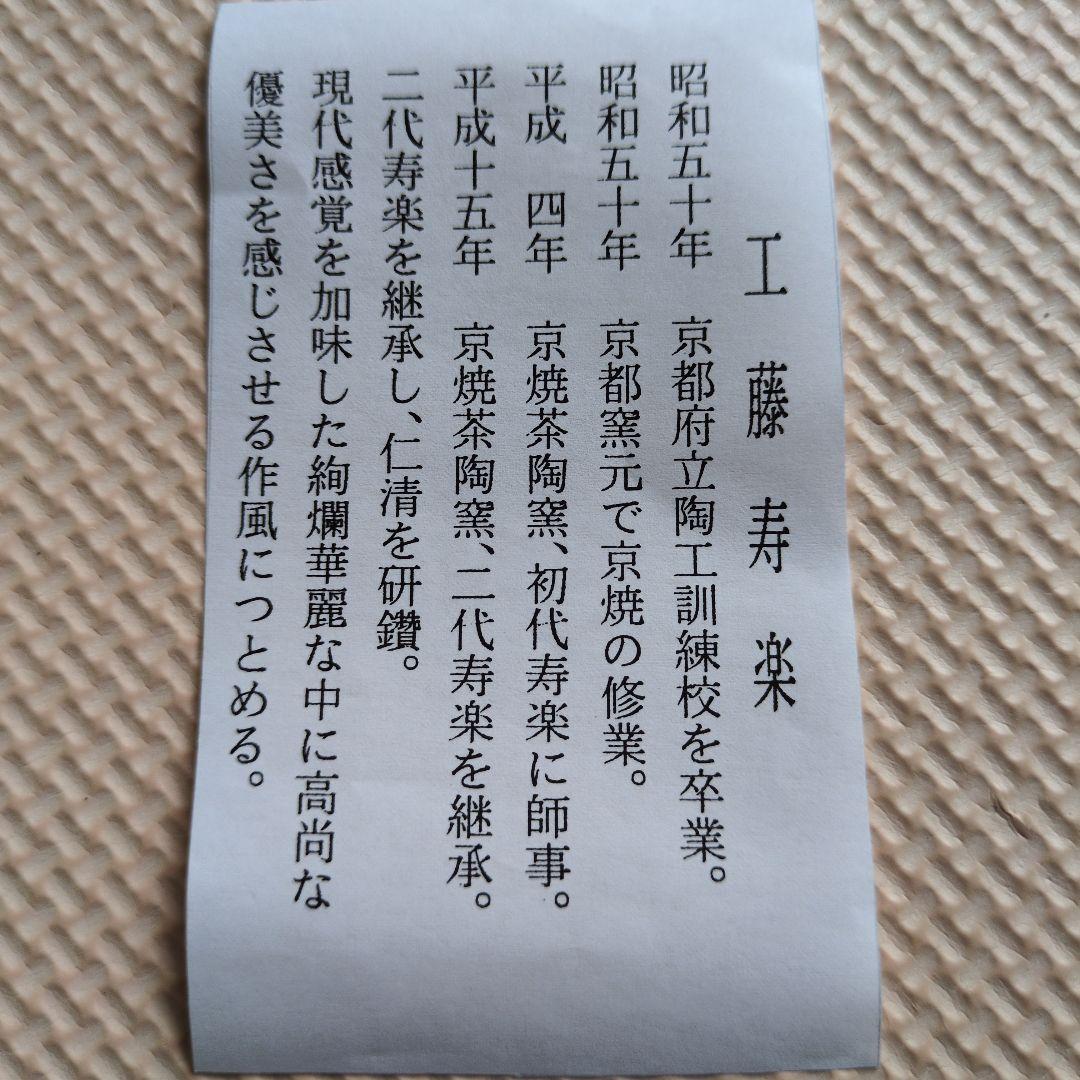 工藤寿楽
昭和五十年　京都府立陶工訓練校を卒業。
昭和五十年　京都窯元で京焼の修業。
平成　四年　京焼茶陶窯、初代寿楽に師事。
平成十五年　京焼茶陶窯、二代寿楽を継承。
二代寿楽を継承し、仁清を研鑽。
現代感覚を加味した絢爛華麗な中に高尚な
優美さを感じさせる作風につとめる。